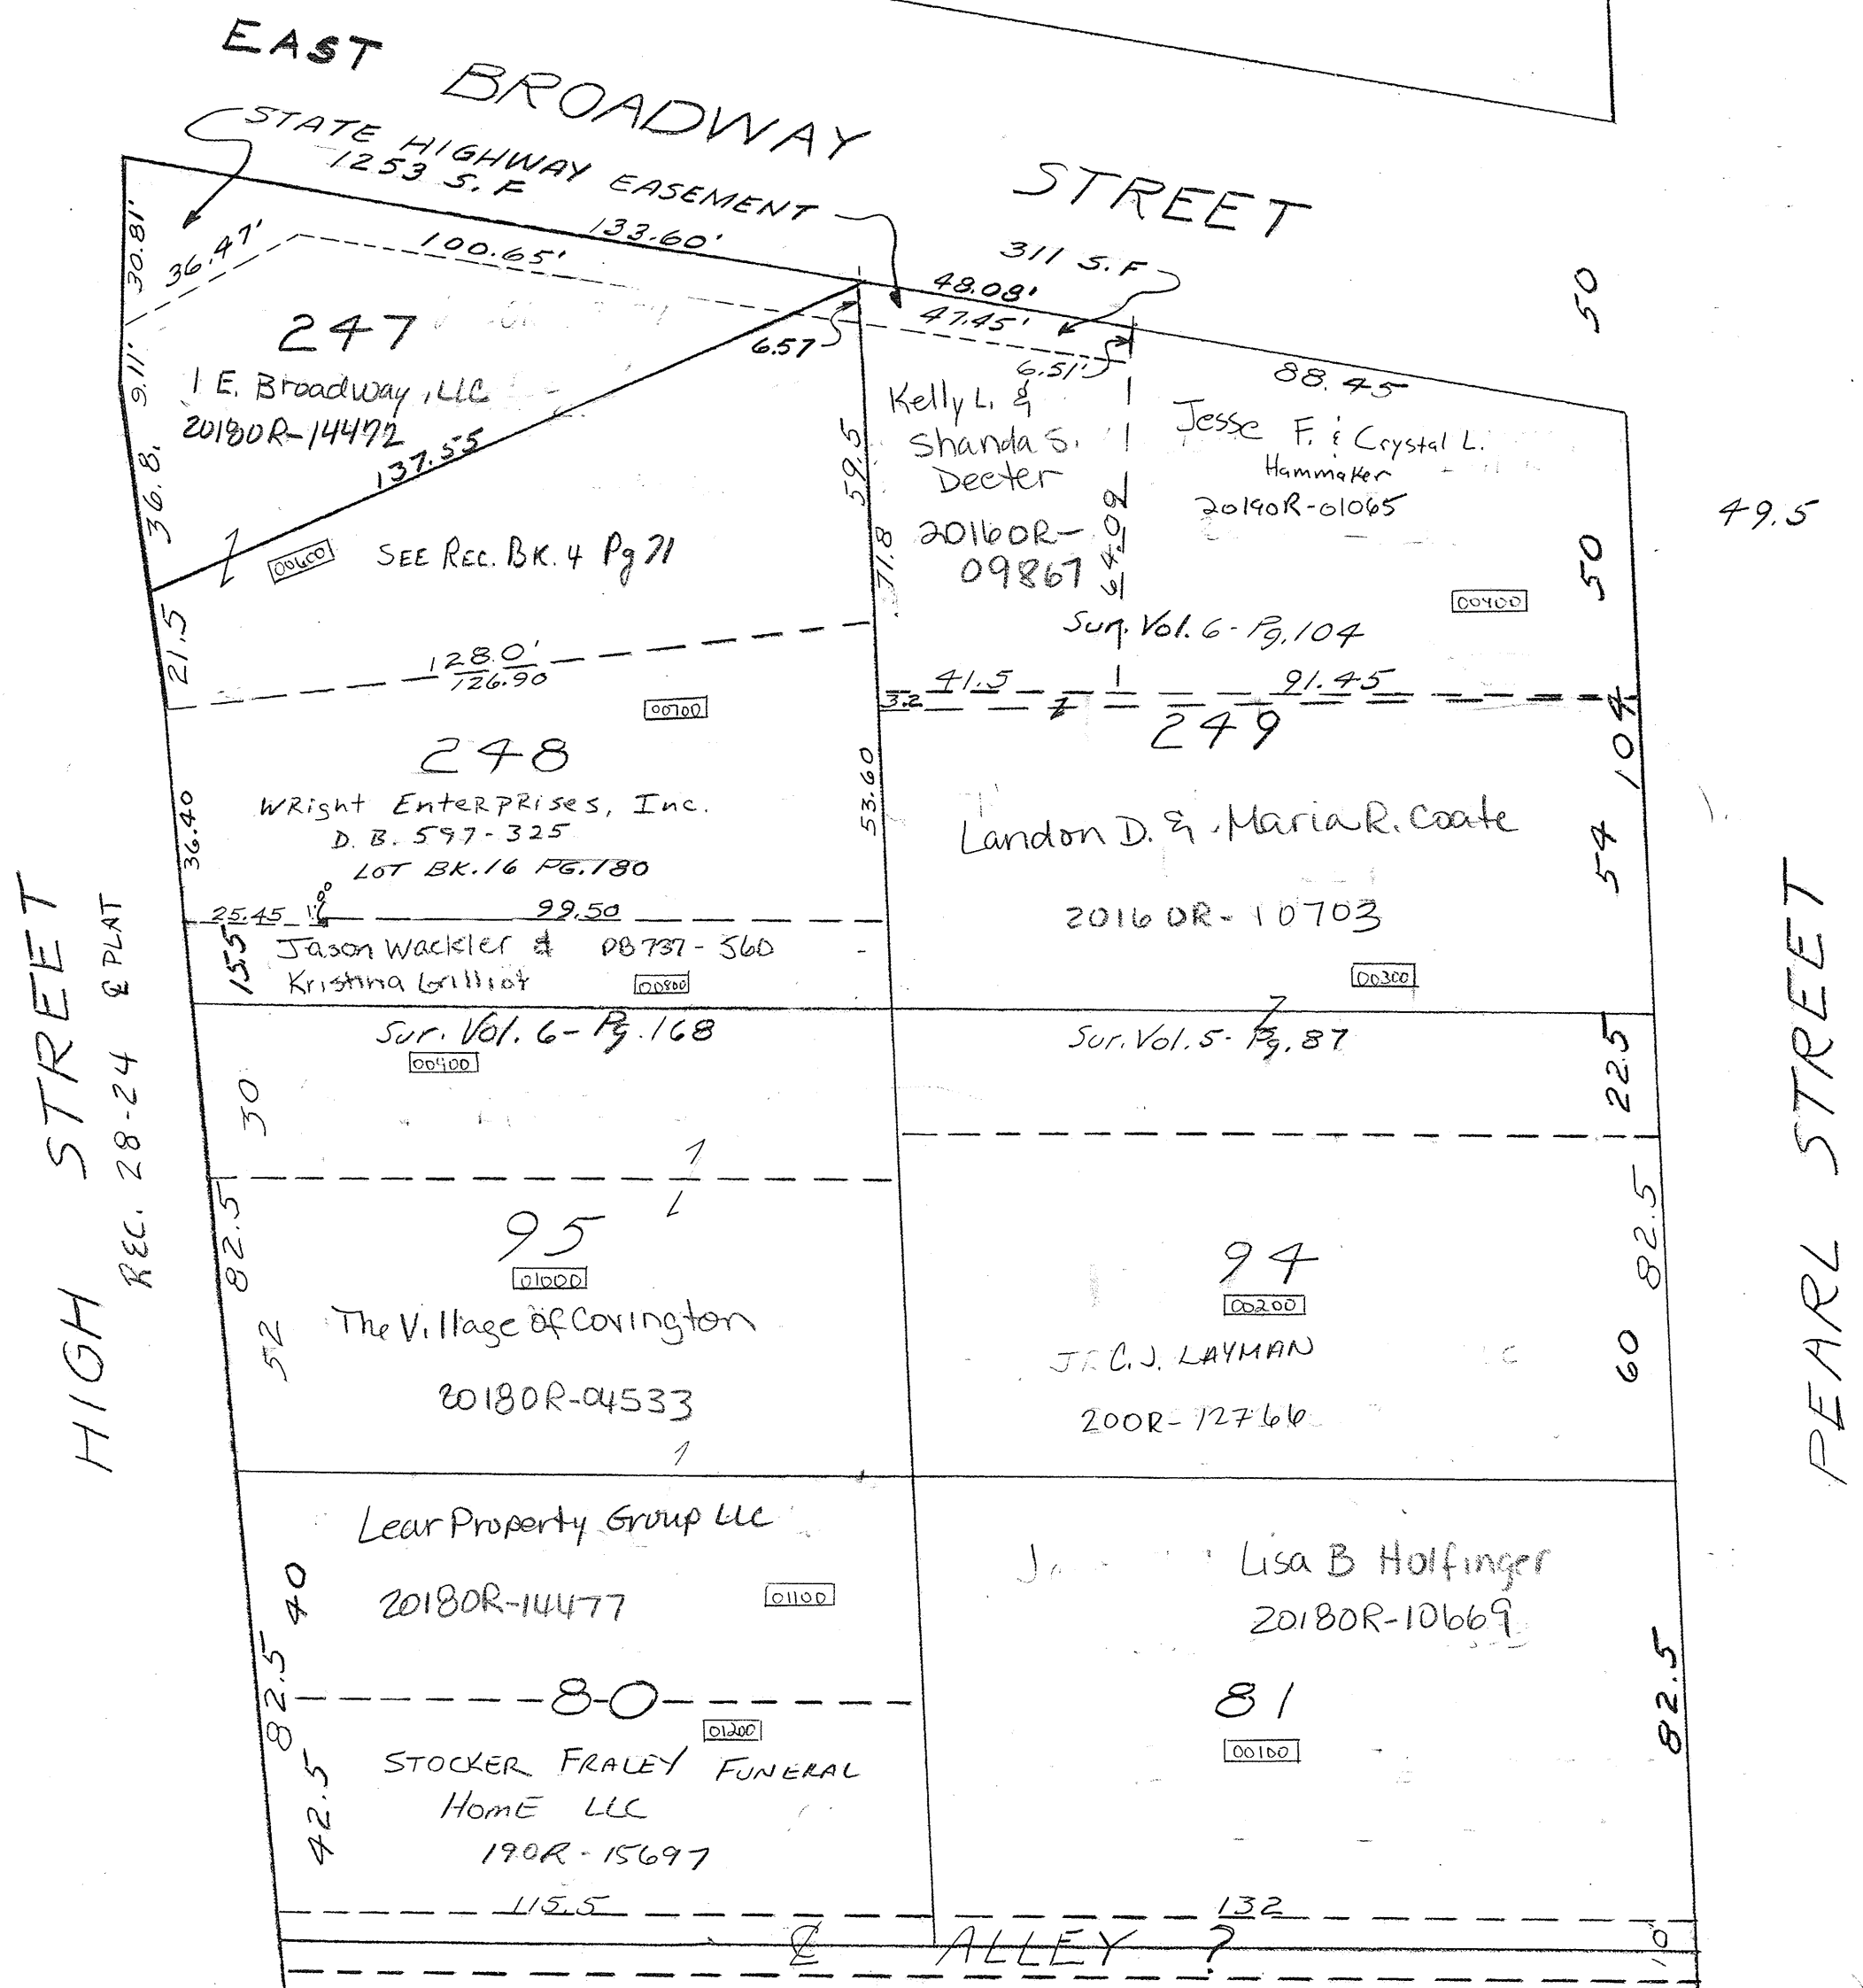 EAST BROADWAY STREET
STATE HIGHWAY EASEMENT
1253 S.F
133.60'
100.65'
36.47'
30.81'
9.11'
36.8
247
1 E. Broadway, LLC
20180R-14472
137.55
6.57
48.08'
47.45'
311 S.F
6.51'
88.45
50
59.5
71.8
Kelly L. &
Shanda S.
Deeter
20160R-
09867
64.09
Jesse F. & Crystal L.
Hammaker
20190R-01065
00400
50
49.5
Sur. Vol. 6-Pg. 104
00600
SEE REC. BK. 4 Pg 71
21.5
128.0'
126.90
00700
3.2
41.5
91.45
249
104
248
WRight EnteRpRises, Inc.
D. B. 597-325
LOT BK. 16 PG. 180
36.40
53.60
Landon D. & Maria R. Coate
20160R-10703
00300
54
25.45
99.50
15.5
Jason Wackler & DB 737-560
Kristina Grilliot
00800
Sur. Vol. 6-Pg. 168
00900
30
Sur. Vol. 5-Pg. 87
22.5
HIGH STREET
REC. 28-24 & PLAT
PEARL STREET
82.5
95
01000
The Village of Covington
20180R-04533
52
94
00200
C.J. LAYMAN
200R-12766
82.5
60
Lear Property Group LLC
20180R-14477
01100
40
82.5
80
01200
STOCKER FRALEY FUNERAL
HOME LLC
190R-15697
42.5
115.5
Lisa B Holfinger
20180R-10669
81
00100
82.5
132
ALLEY ?
10'